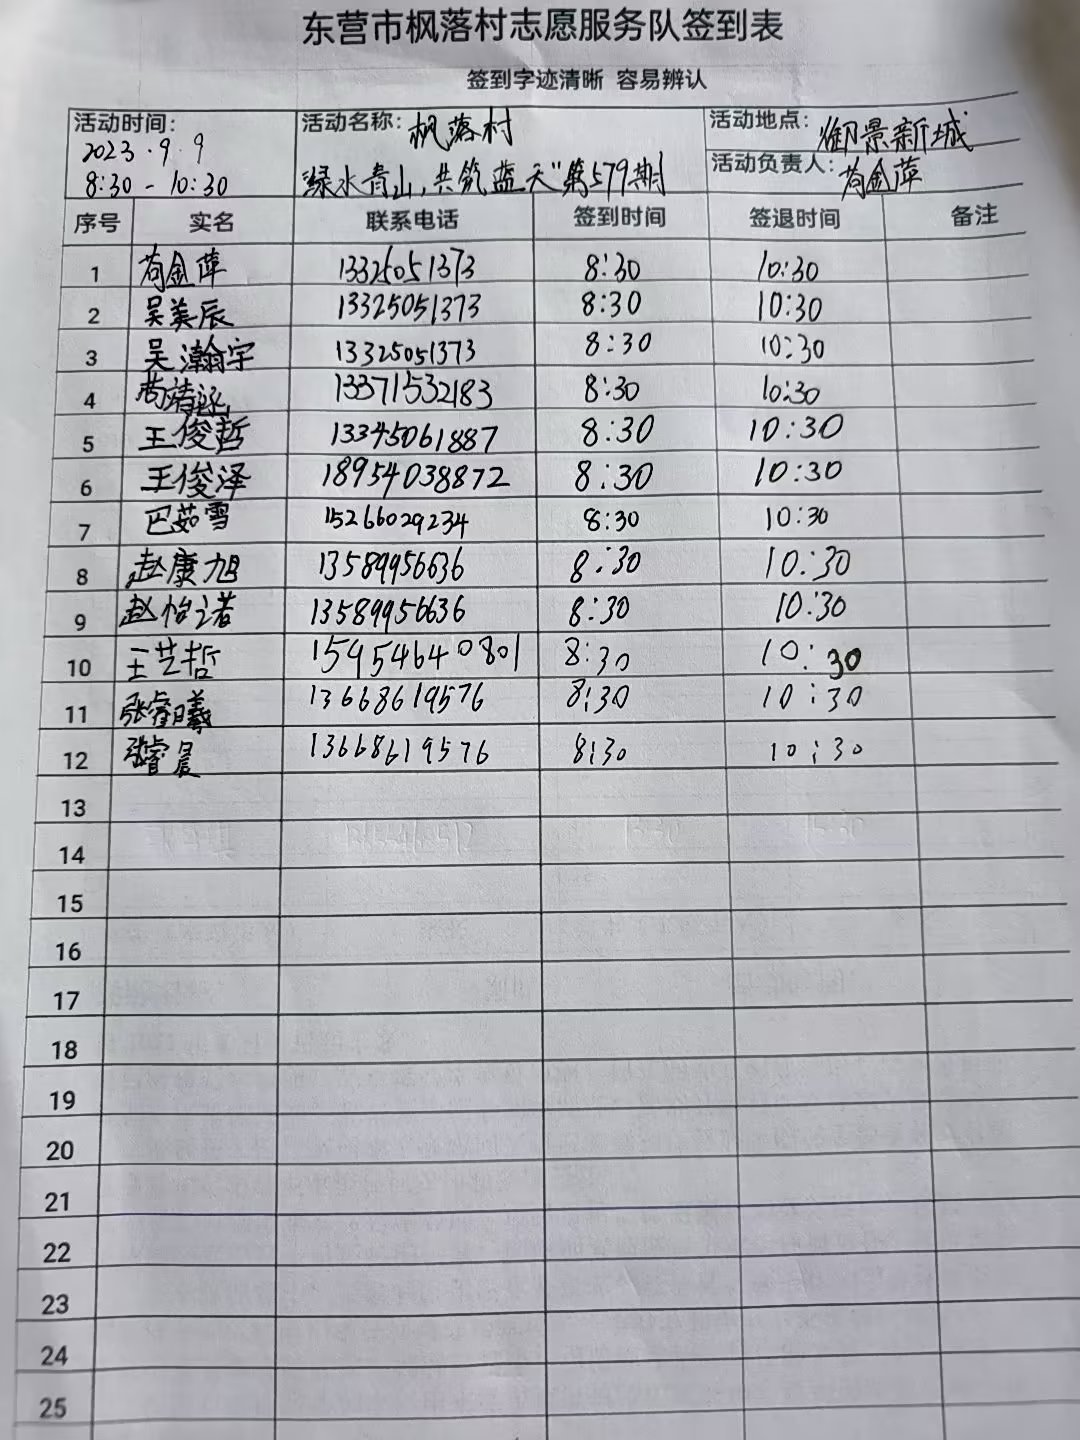 东营市枫落村志愿服务队签到表
签到字迹清晰 容易辨认
活动时间:
2023.9.9
8:30-10:30
活动名称: 枫落村
"绿水青山,共筑蓝天"第579期
活动地点: 御景新城
活动负责人: 苟金萍
序号 实名 联系电话 签到时间 签退时间 备注
1 苟金萍 13325051373 8:30 10:30
2 吴美辰 13325051373 8:30 10:30
3 吴瀚宇 13325051373 8:30 10:30
4 13371532183 8:30 10:30
5 王俊哲 13345061887 8:30 10:30
6 王俊泽 18954038872 8:30 10:30
7 巴茹雪 15266029234 8:30 10:30
8 赵康旭 13589956636 8:30 10:30
9 赵怡诺 13589956636 8:30 10:30
10 王艺哲 15954640801 8:30 10:30
11 张睿曦 13668619576 8:30 10:30
12 张睿晨 13668619576 8:30 10:30
13
14
15
16
17
18
19
20
21
22
23
24
25